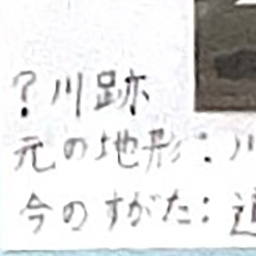 ?川跡
元の地形:川
今のすがた:道